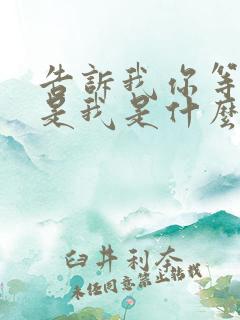 告訴我你等
是我是什麼
臼井利奈
未經同意禁止轉載